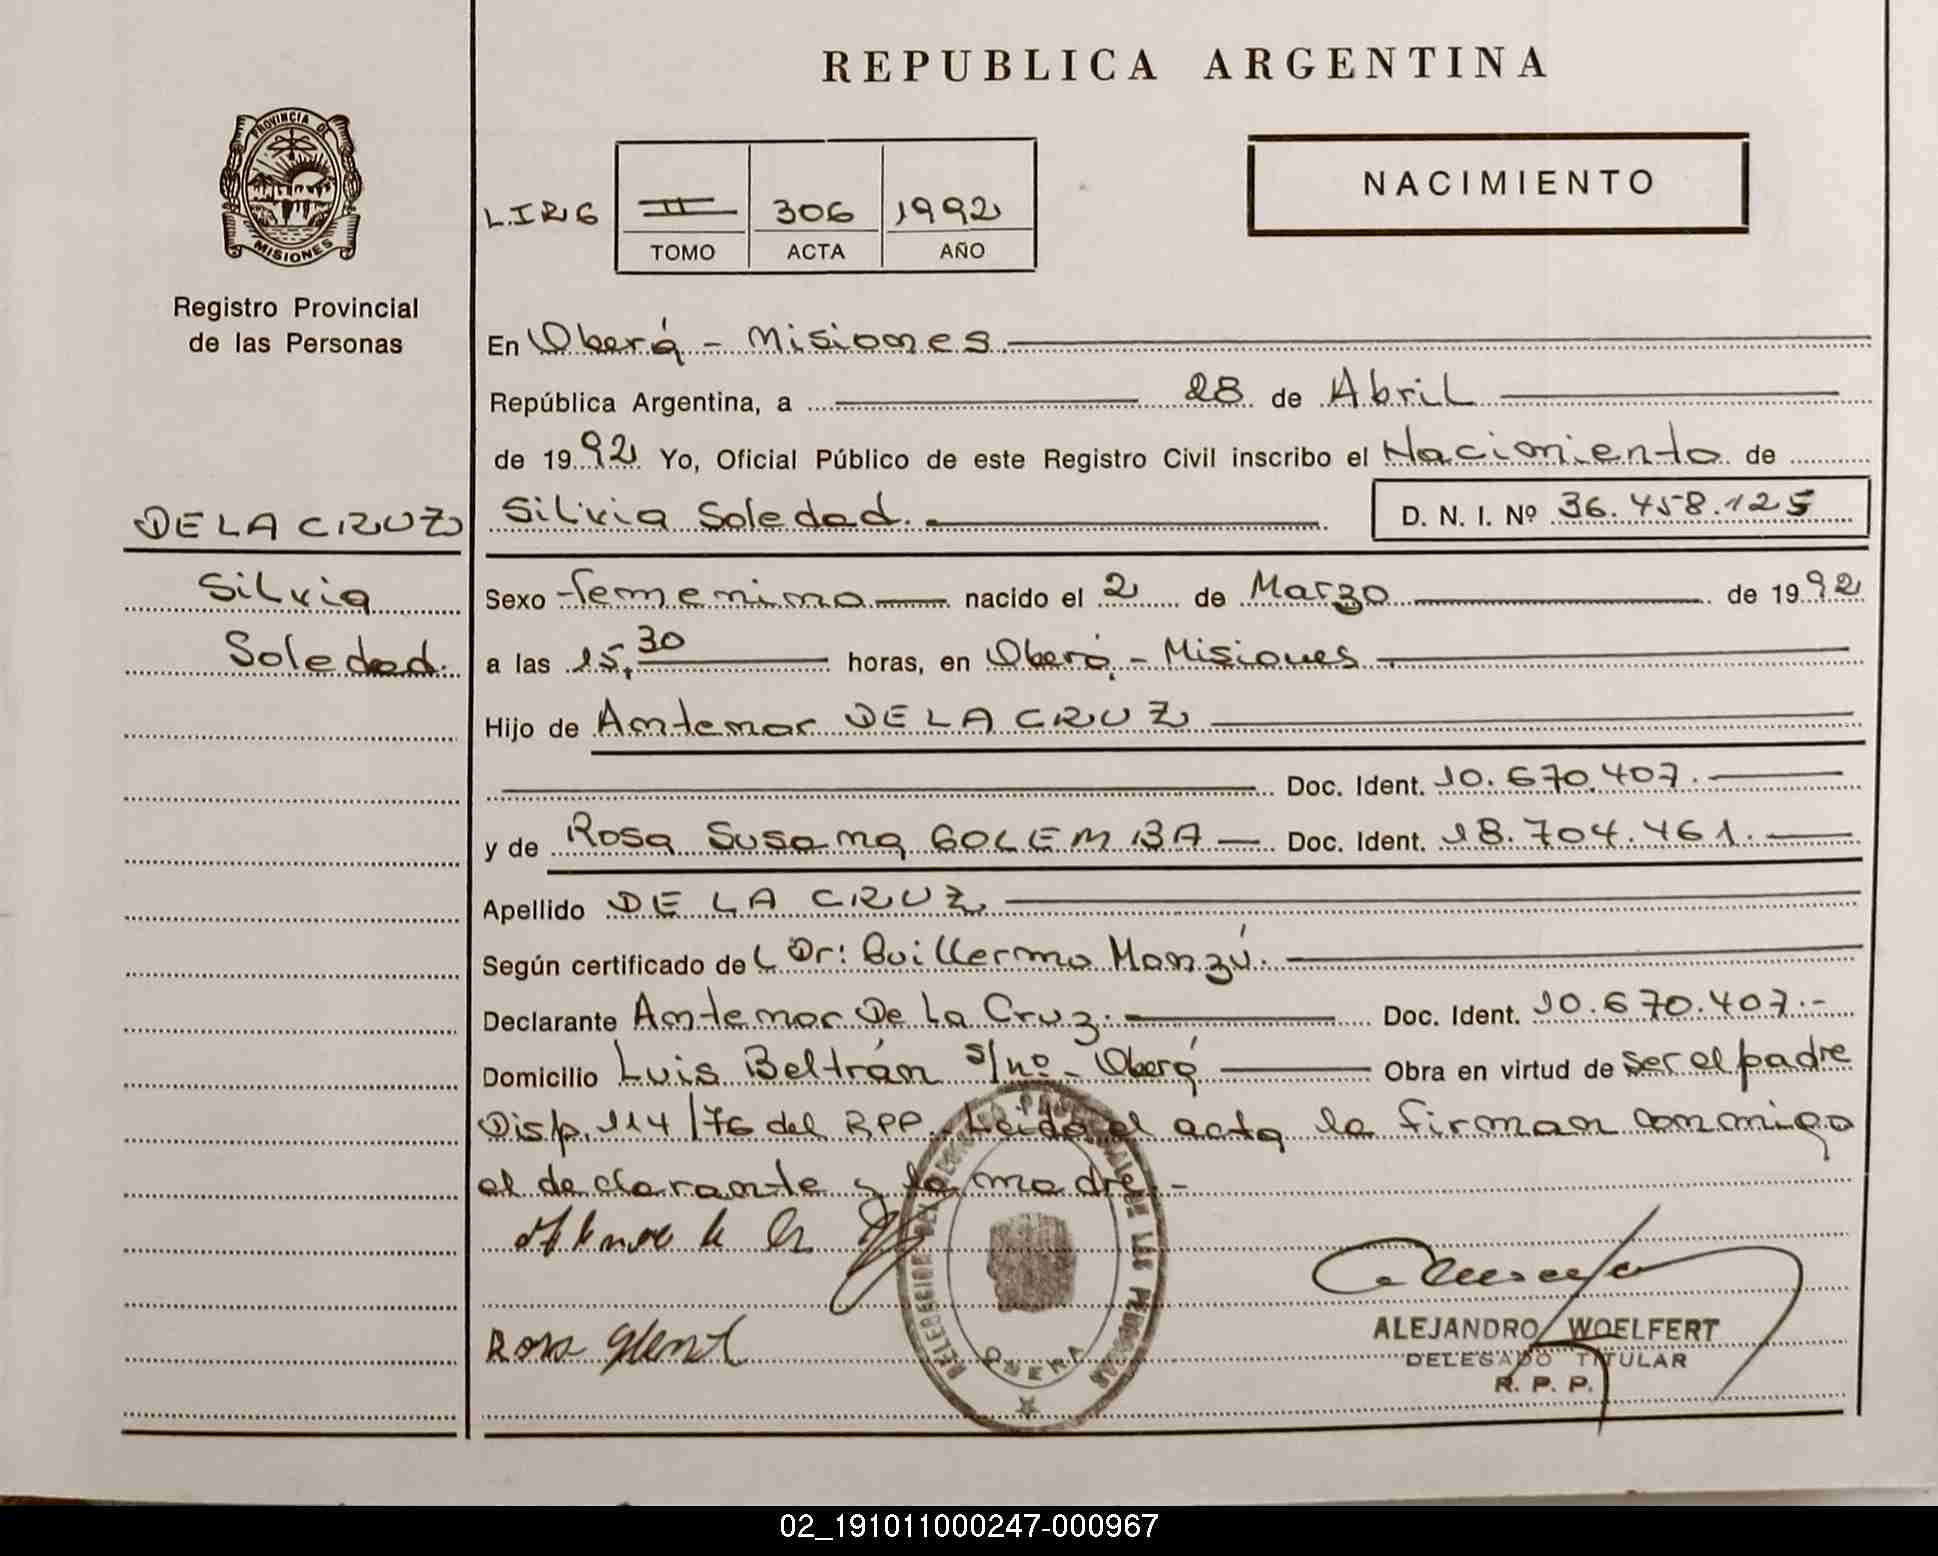 REPUBLICA ARGENTINA
PROVINCIA DE
MISIONES
Registro Provincial
de las Personas
NACIMIENTO
II 306 1992
TOMO ACTA AÑO
En Oberá - Misiones
República Argentina, a 28 de Abril
de 1992 Yo, Oficial Público de este Registro Civil inscribo el Nacimiento de
DE LA CRUZ Silvia Soledad. D. N. I. Nº 36.458.125
Silvia Sexo femenino nacido el 2 de Marzo de 1992
Soledad. a las 15,30 horas, en Oberá, - Misiones
Hijo de Antenor DE LA CRUZ
Doc. Ident. 10.670.407.
y de Rosa Susana GOLEMBA Doc. Ident. 18.704.461.
Apellido DE LA CRUZ
Según certificado del Dr: Guillermo Manzú.
Declarante Antenor De La Cruz. Doc. Ident. 10.670.407.-
Domicilio Luis Beltrán s/nº - Oberá Obra en virtud de ser el padre
Disp. 114/76 del RPP. Leída el acta la firman conmigo
el declarante y la madre.-
ALEJANDRO WOELFERT
DELEGADO TITULAR
R. P. P.
Rosa
OBERA
02_191011000247-000967